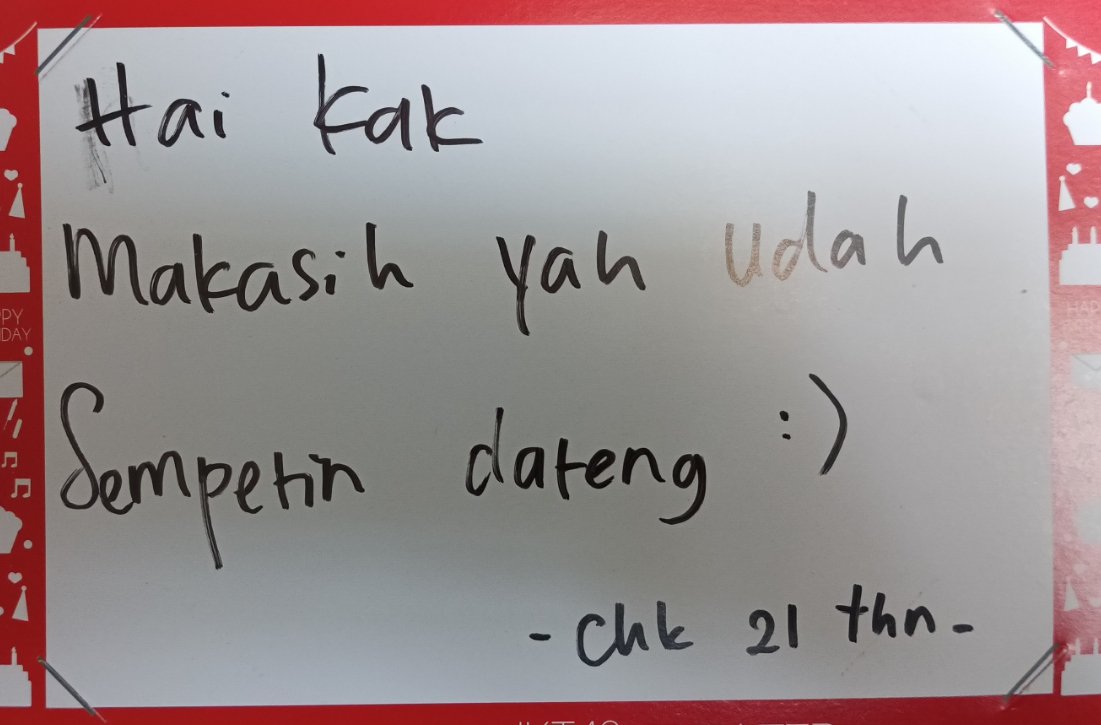 Hai Kak
Makasih yah udah
Sempetin dateng :)
- Chk 21 thn -